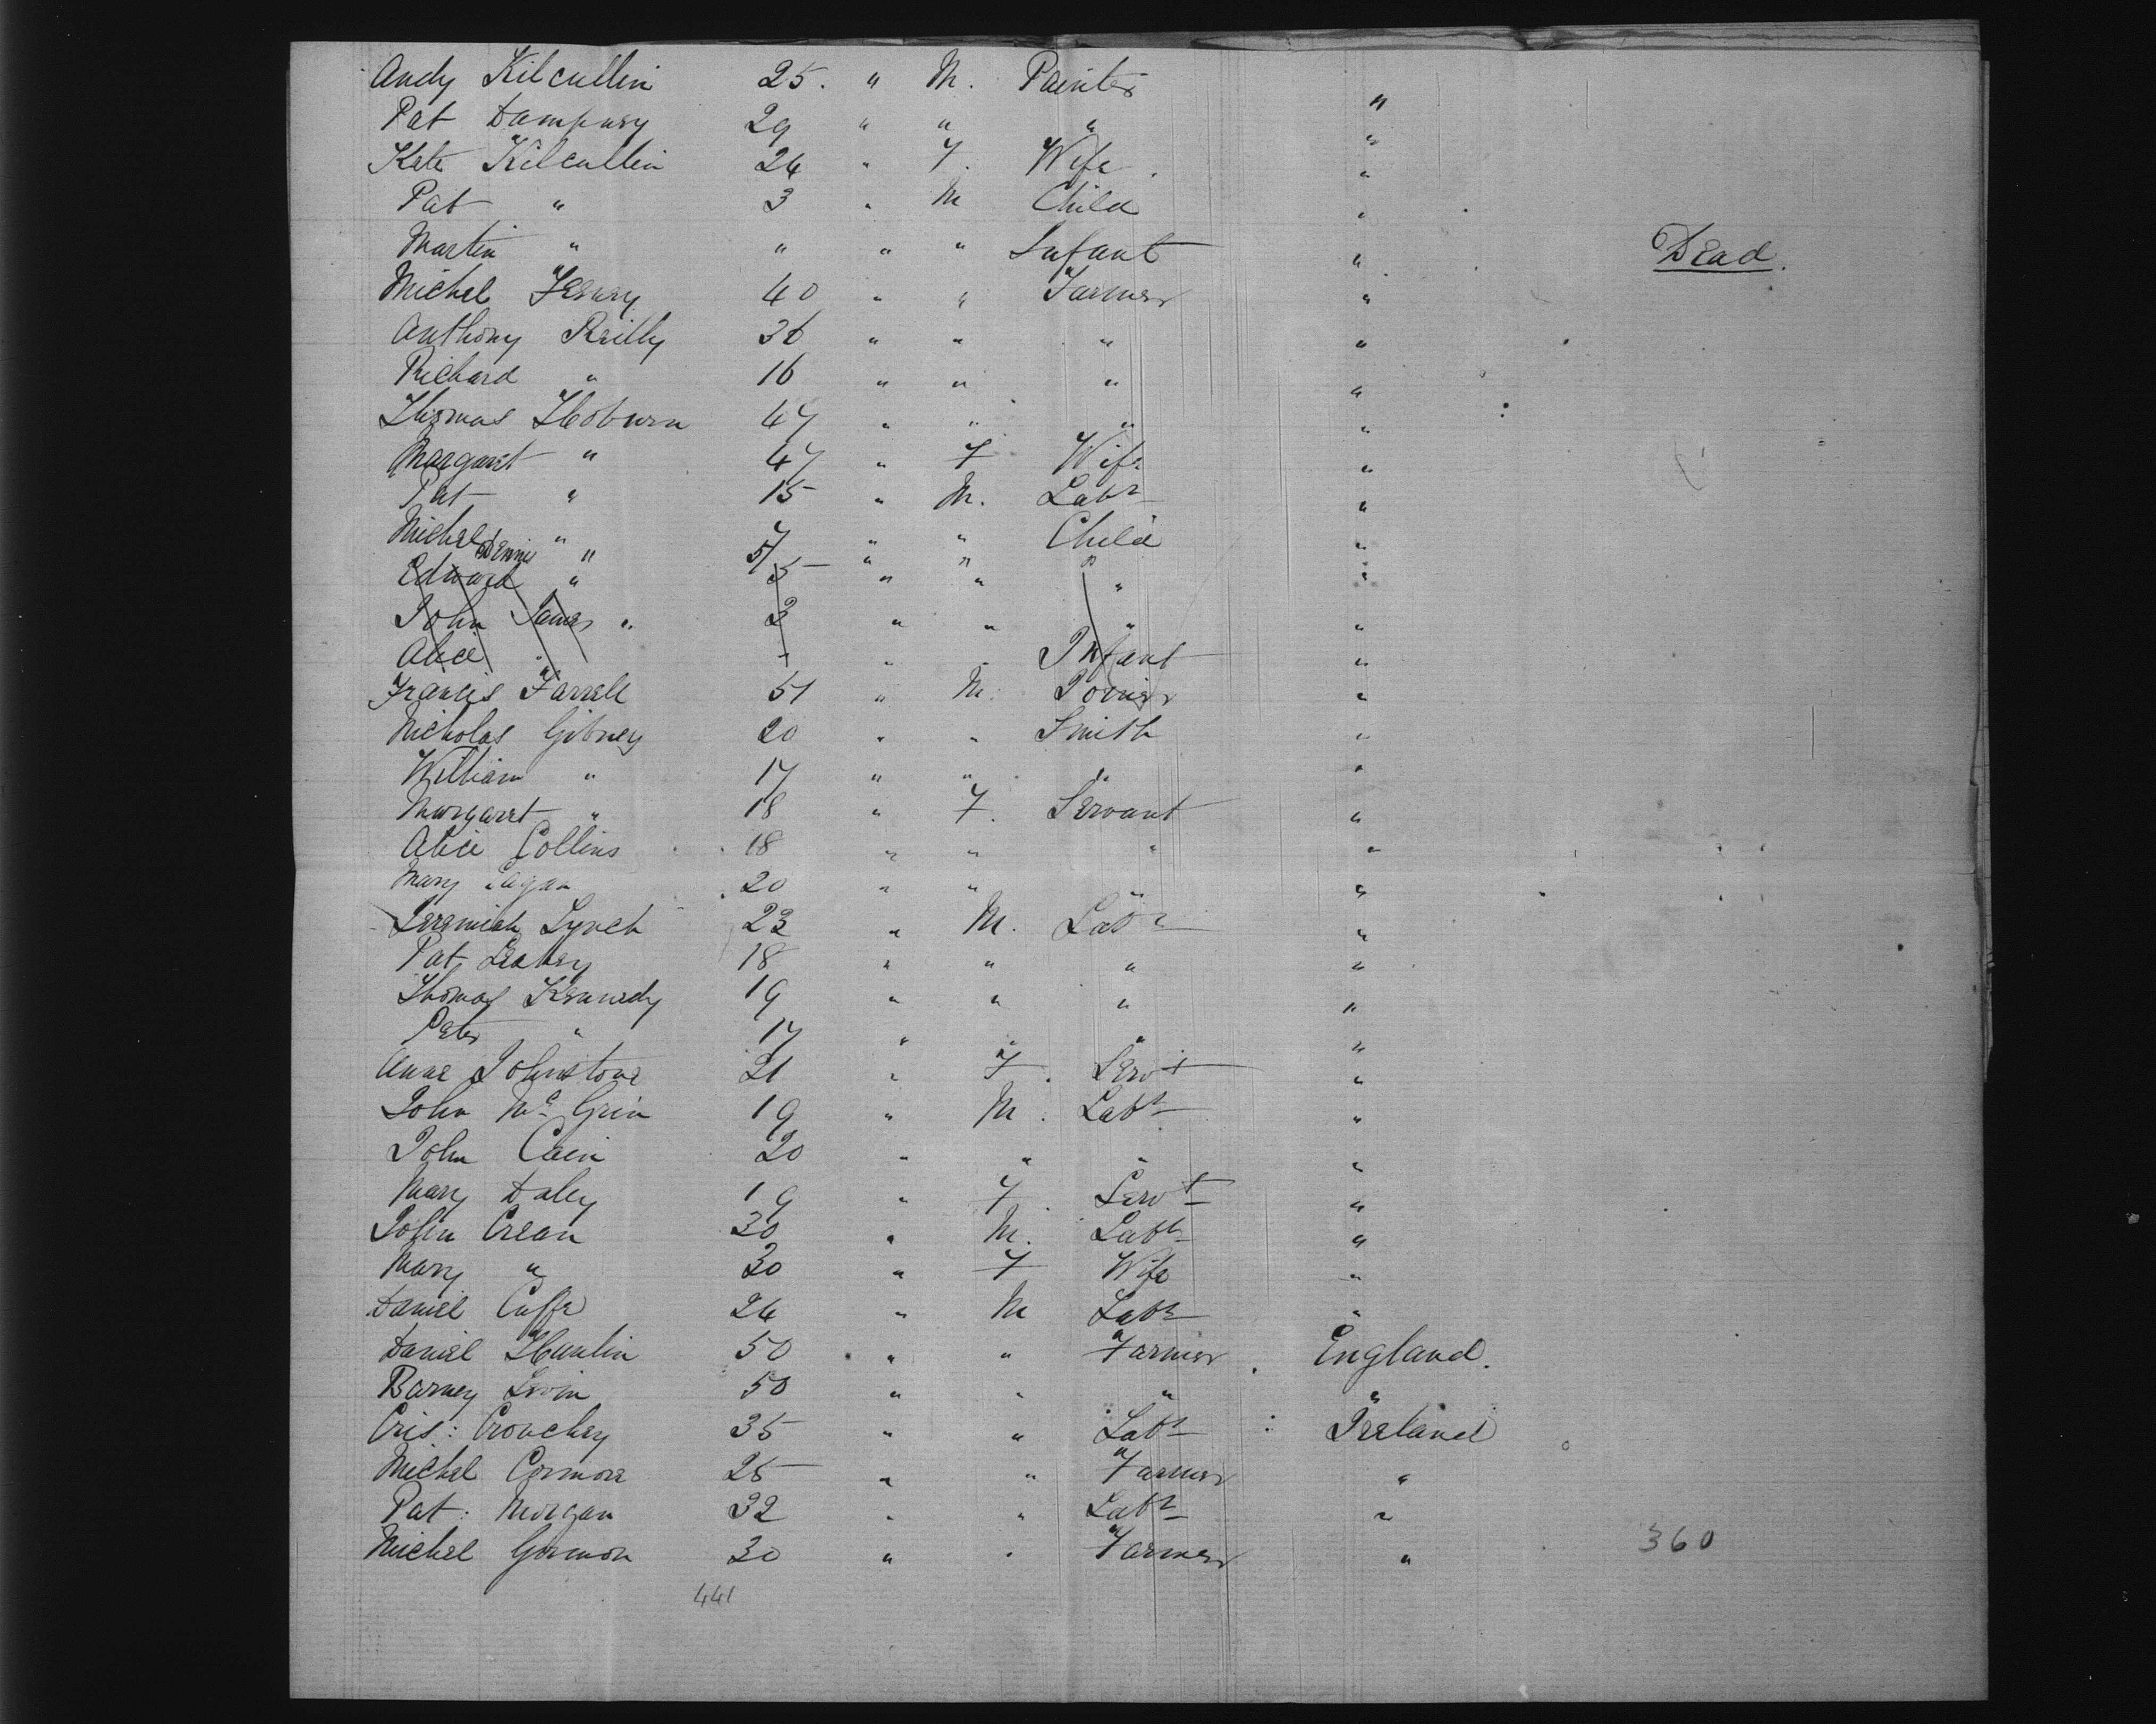 Andy Kilcullin 25. " M. Painter "
Pat Dampsey 29 " " " "
Kate Kilcullin 24 " F. Wife. "
Pat " 3 " M Child "
Martin " " " " Infant " Dead.
Michel Feeney 40 " " Farmer "
Anthony Reilly 36 " " " "
Richard " 16 " " " "
Thomas Hoburn 47 " " " "
Margaret " 47 " F Wife "
Pat " 15 " M. Labr "
Michel " 7 " " Child "
Dennis " 5 " " "
Edward " 5 " " " "
John James " 2 " " " "
Alice " " " Infant "
Francis Farrell 51 " M. Joiner "
Nicholas Gibney 20 " " Smith "
William " 17 " " " "
Margaret " 18 " F. Servant "
Alice Collins 18 " " " "
Mary Eagan 20 " " " "
Jeremiah Lynch 23 " M. Labr "
Pat Leahey 18 " " " "
Thomas Kennedy 19 " " " "
Peter " 17 " " " "
Anne Johnstone 21 " F. Servt "
John Mc Grin 19 " M. Labr "
John Cain 20 " " " "
Mary Daley 19 " F. Servt "
John Crean 30 " M. Labr "
Mary " 30 " F Wife "
Daniel Cuffe 24 " M Labr "
Daniel Hanlin 50 " " Farmer. England.
Barney Irvin 50 " " " "
Cris: Crouchey 35 " " Labr : Ireland
Michel Connore 25 " " Farmer "
Pat: Morgan 32 " " Labr "
Michel Gormon 30 " " Farmer " 360
441